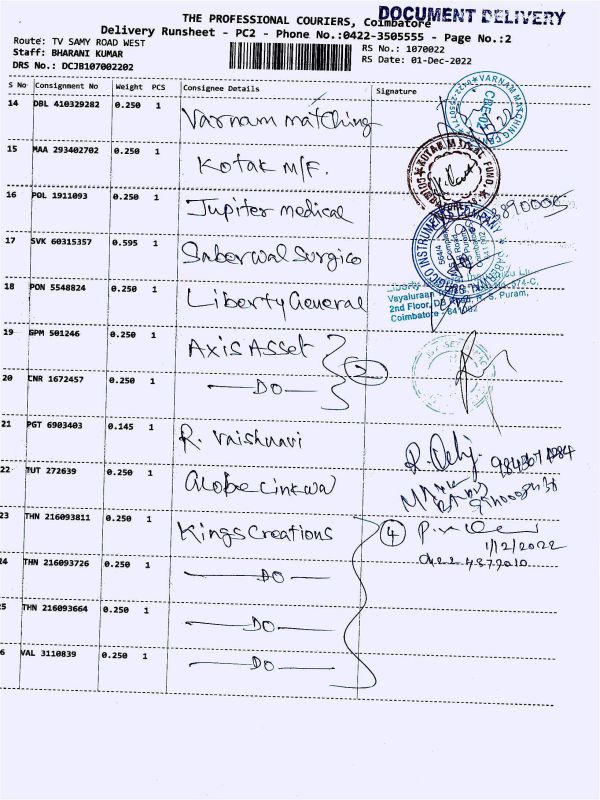 DOCUMENT DELIVERY
THE PROFESSIONAL COURIERS, Coimbatore
Delivery Runsheet - PC2 - Phone No.:0422-3505555 - Page No.:2
Route: TV SAMY ROAD WEST
RS No.: 1070022
Staff: BHARANI KUMAR
RS Date: 01-Dec-2022
DRS No.: DCJB107002202
S No Consignment No Weight PCS Consignee Details Signature
14 DBL 410329282 0.250 1 Varnam matching
15 MAA 293402702 0.250 1 Kotak M/F.
16 POL 1911093 0.250 1 Jupiter medical
17 SVK 60315357 0.595 1 Saberwal Surgico
18 PON 5548824 0.250 1 Liberty General
Vayaluraan
2nd Floor, DB Road, R. S. Puram,
Coimbatore
19 GPM 501246 0.250 1 Axis Asset
2
20 CNR 1672457 0.250 1 DO
21 PGT 6903403 0.145 1 R. Vaishnavi
22 TUT 272639 0.250 1
23 THN 216093811 0.250 1 Kings Creations 4
1/12/2022
24 THN 216093726 0.250 1 DO
25 THN 216093664 0.250 1 DO
6 VAL 3110839 0.250 1 DO